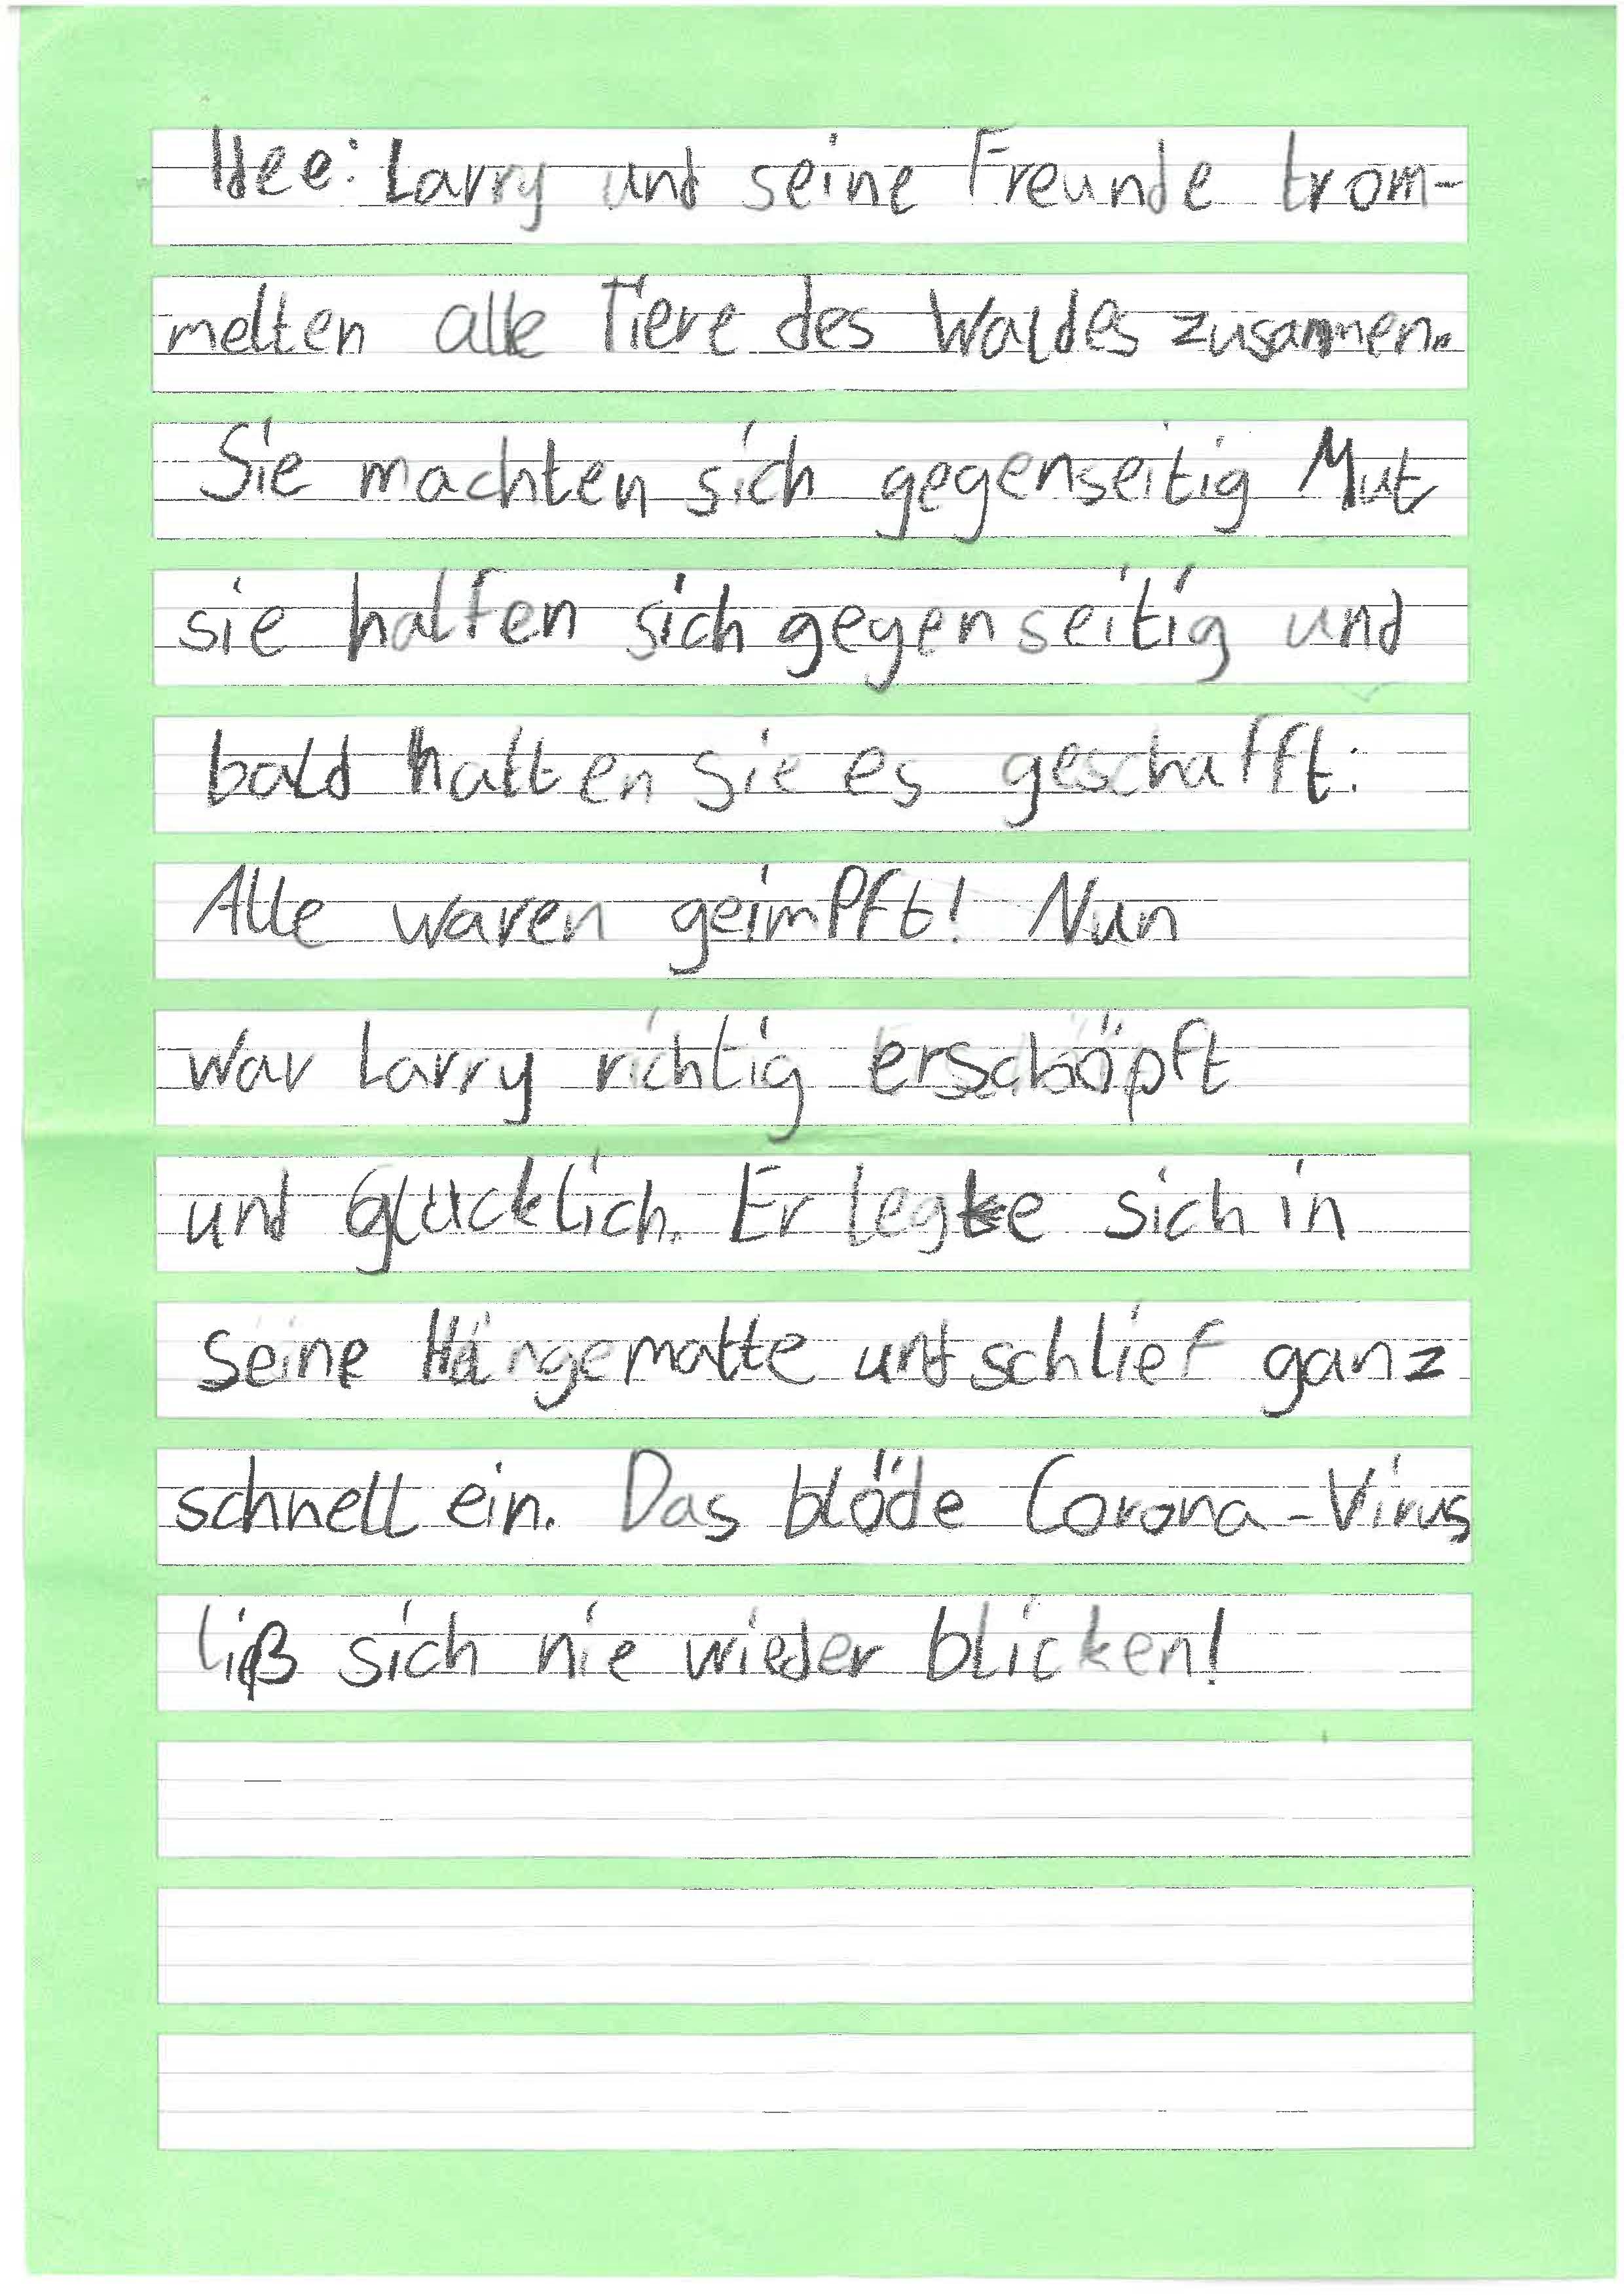 Idee: Larry und seine Freunde trom-
melten alle Tiere des Waldes zusammen.
Sie machten sich gegenseitig Mut
sie halfen sich gegenseitig und
bald hatten sie es geschafft:
Alle waren geimpft! Nun
war Larry richtig erschöpft
und Glücklich. Er legte sich in
seine Hängematte und schlief ganz
schnell ein. Das blöde Corona-Virus
ließ sich nie wieder blicken!